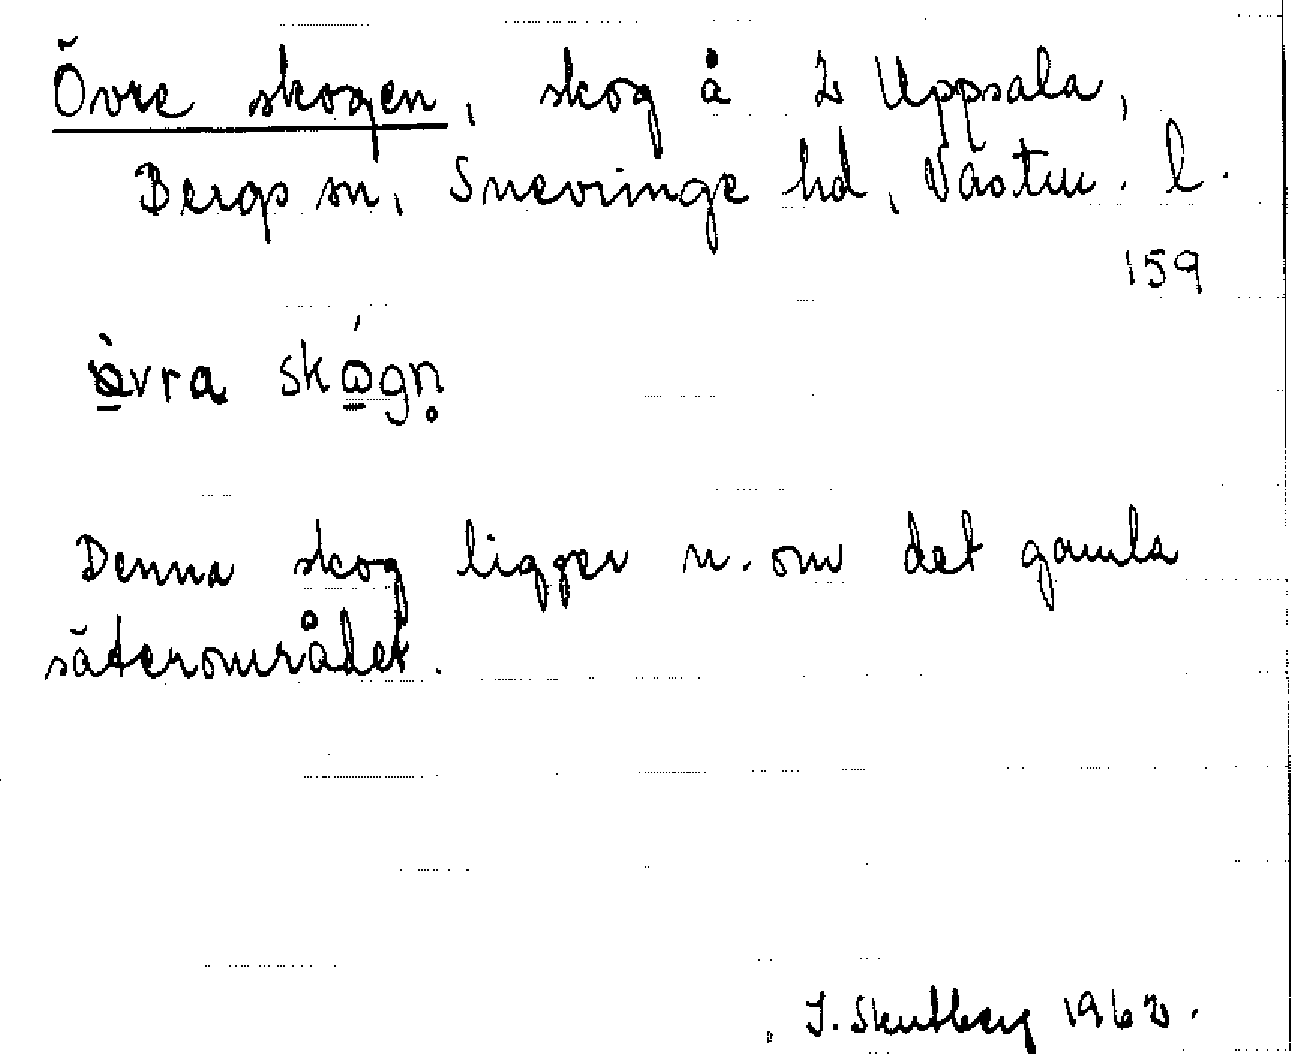 Övre skogen, skog å 2 Uppsala,
Bergs sn, Snevringe hd, Västm. l.
159
skógn̥
Denna skog ligger n. om det gamla
säterområdet.
1962.